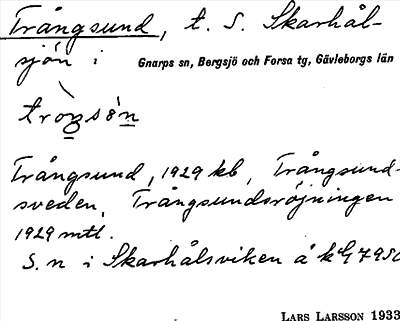 Trångsund, t. S. Skarhål-
sjön i Gnarps sn, Bergsjö och Forsa tg, Gävleborgs län
Trångsund, 1929 kb, Trångsund-
sveden, Trångsundsröjningen
1929 mtl.
S. n i Skarhålsviken å
LARS LARSSON 1933